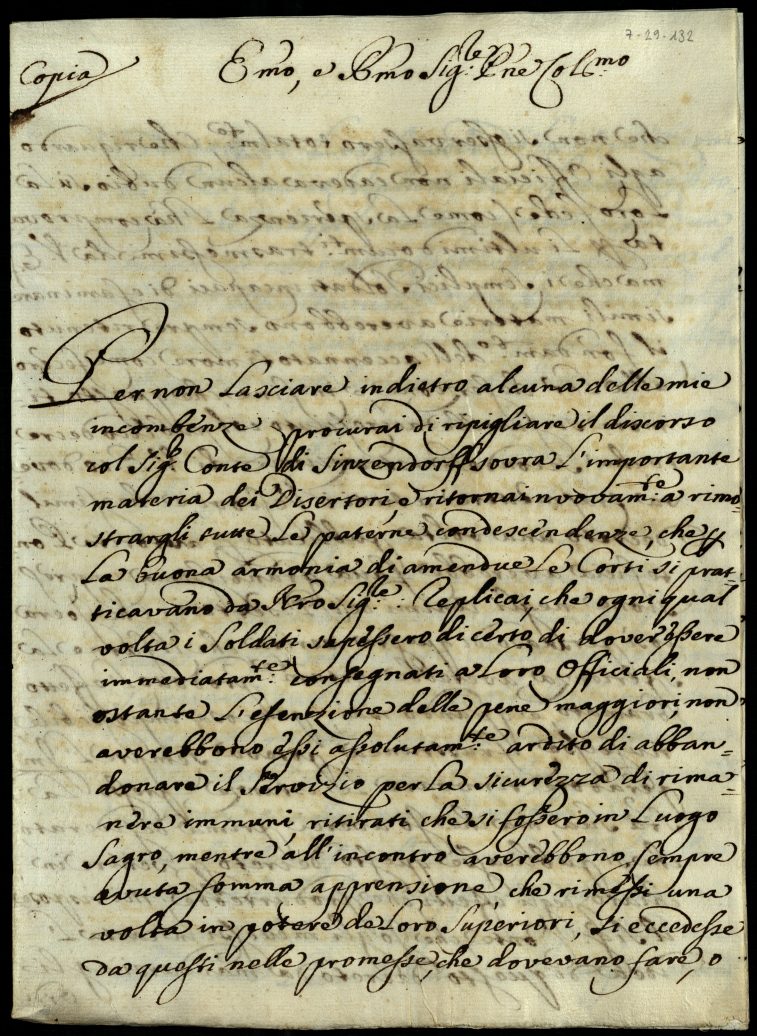 7-29-132
Copia
Emo, e Rmo Sig:re Pne Col:mo
Per non lasciare indietro alcuna delle mie
incombenze procurai di ripigliare il discorso
col Sig:r Conte di Sinzendorff sovra l'importante
materia dei Disertori, e ritornai nuovam:te a rimo-
strargli tutte le paterne condescendenze, che p
la buona armonia di amendue le Corti si prat-
ticavano da Nro Sig:re: Replicai, che ogni qual
volta i Soldati sapessero di certo di dover essere
immediatam:te consegnati a loro Officiali, non
ostante l'esenzione delle pene maggiori, non
averebbono essi assolutam:te ardito di abban-
donare il Servizio per la sicurezza di rima-
nere immuni, ritirati che si fossero in Luogo
Sagro, mentre all'incontro averebbono sempre
avuta somma apprensione che rimessi una
volta in potere de Loro Superiori, si eccedesse
da questi nelle promesse, che dovevano fare, o